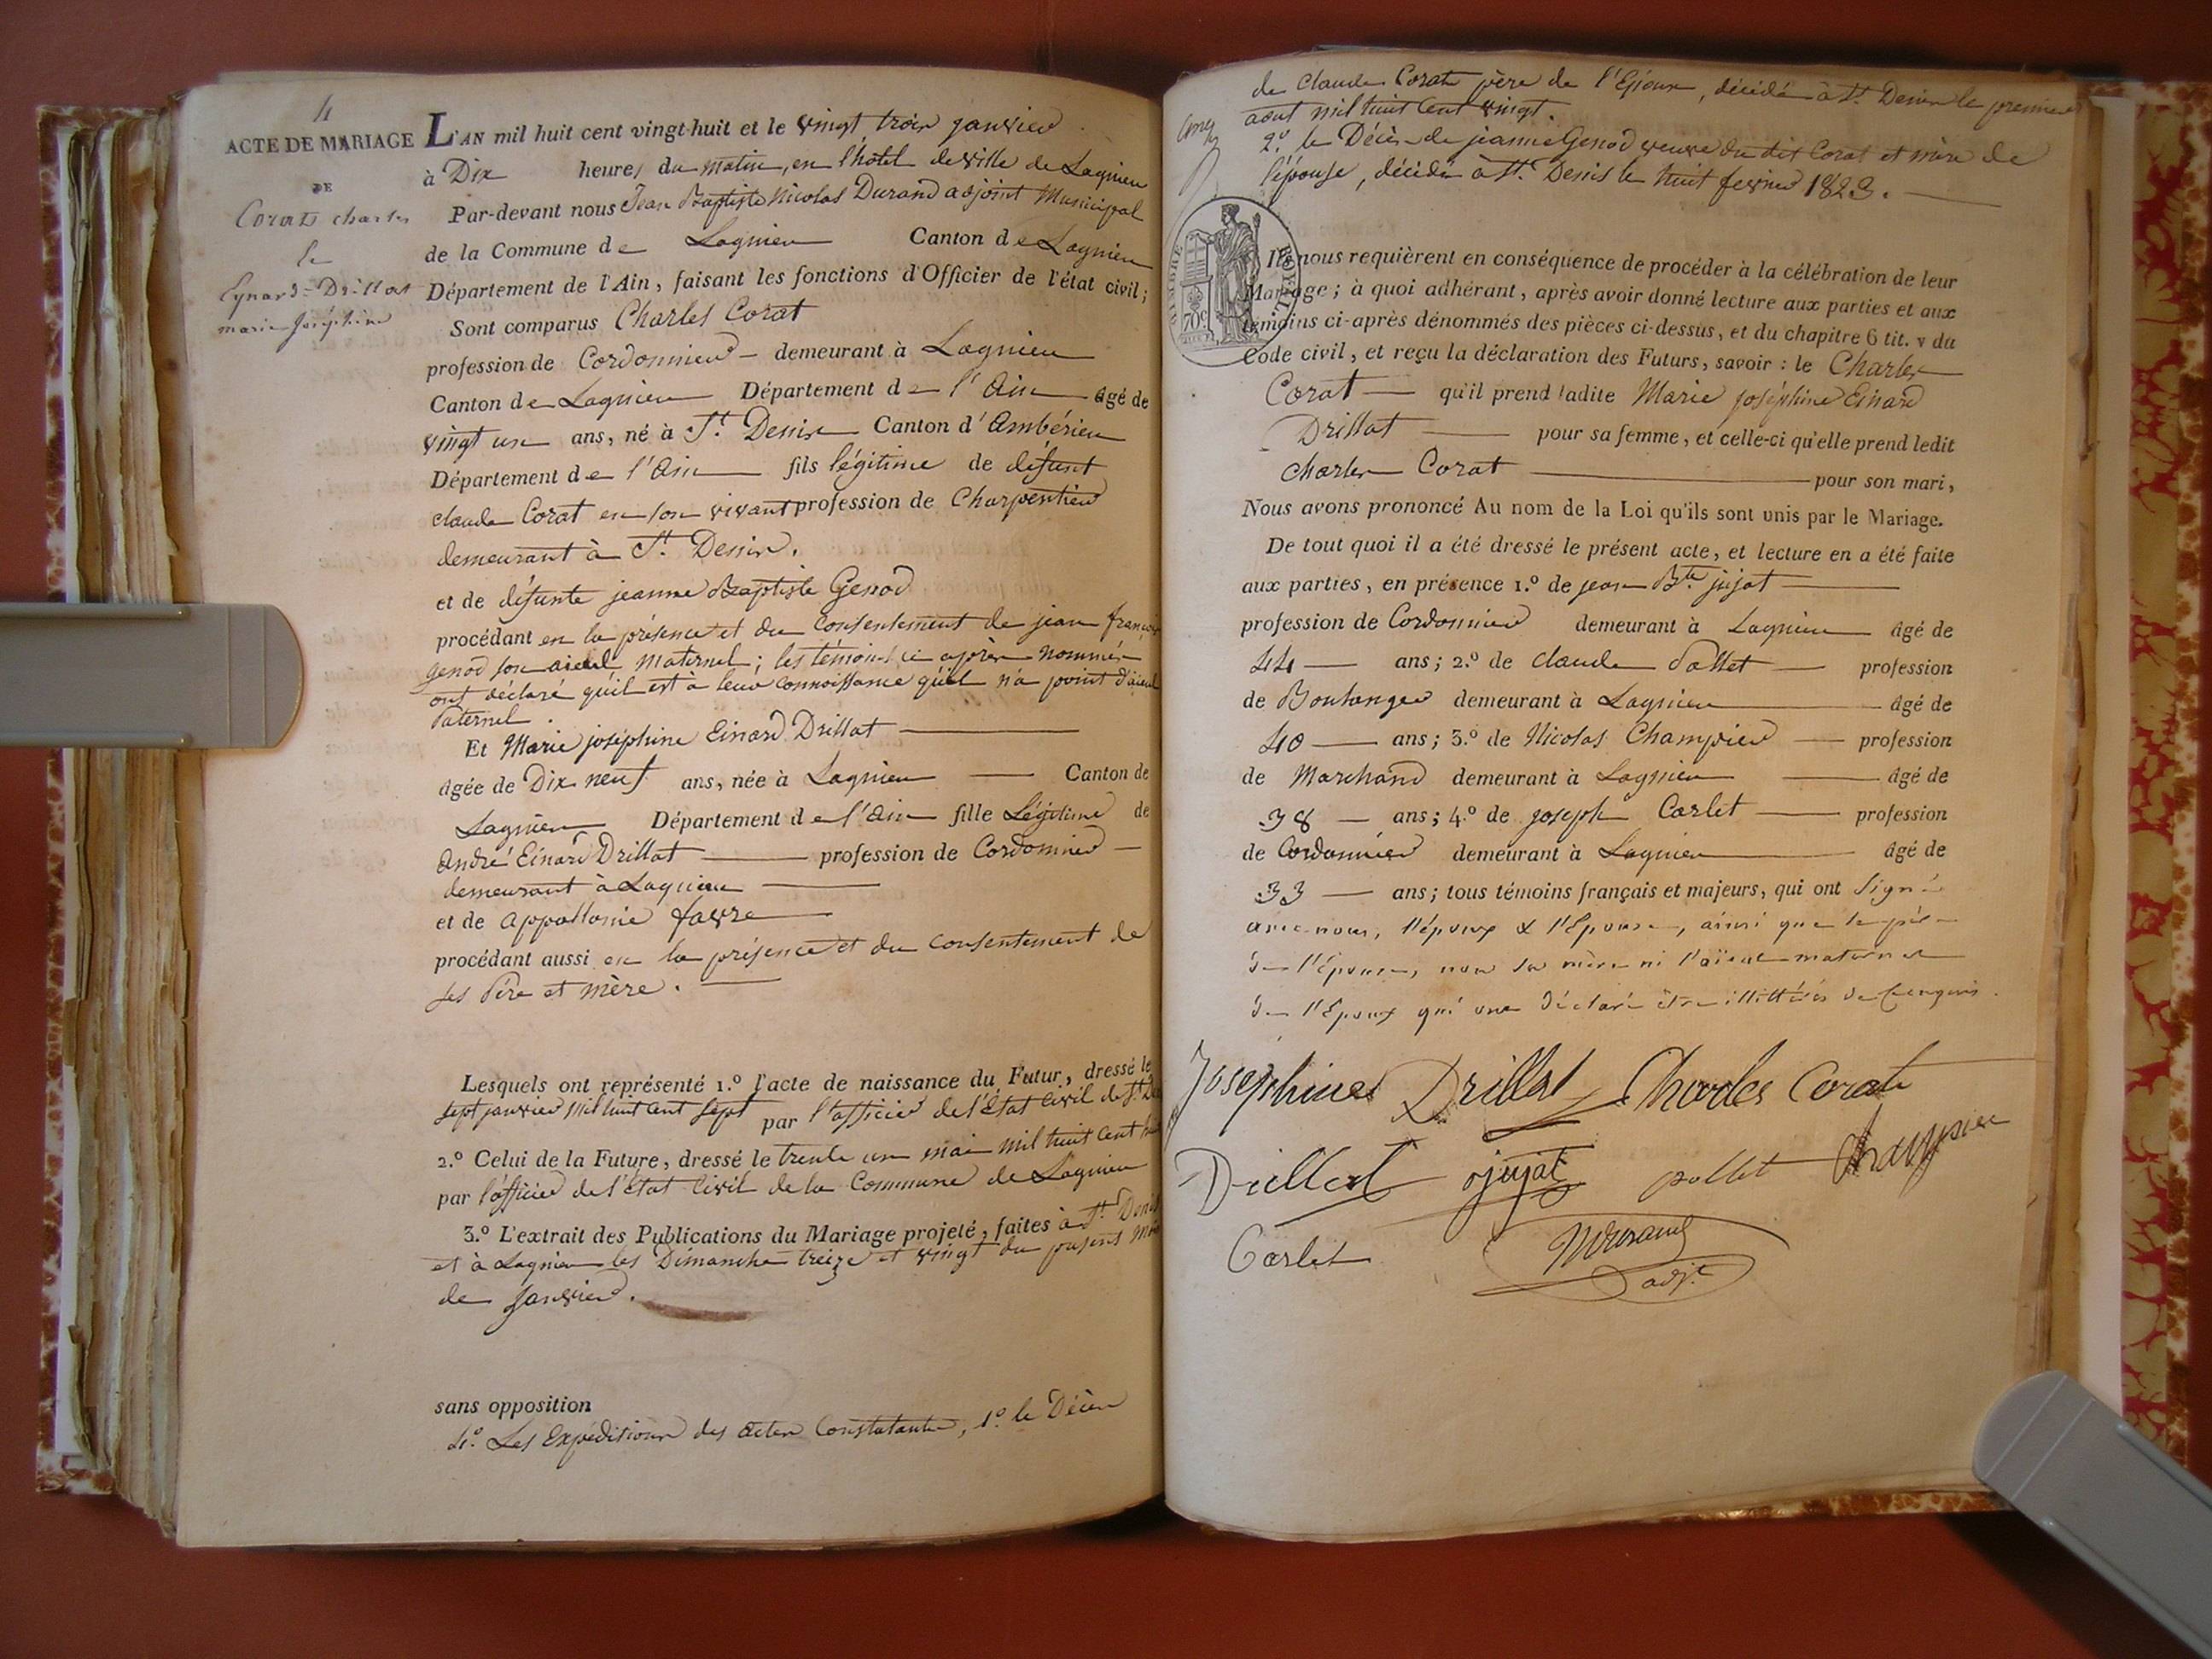 4
ACTE DE MARIAGE
DE
Corat charles
&
Eynard-Drillat
marie joséphine
L'AN mil huit cent vingt-huit et le vingt trois janvier
à Dix heures du matin, en l'hôtel de ville de Lagnieu
Par-devant nous Jean Baptiste Nicolas Durand adjoint Municipal
de la Commune de Lagnieu Canton de Lagnieu
Département de l'Ain, faisant les fonctions d'Officier de l'état civil;
Sont comparus Charles Corat
profession de Cordonnier demeurant à Lagnieu
Canton de Lagnieu Département de l'Ain agé de
vingt un ans, né à St. Denis Canton d'Ambérieu
Département de l'Ain fils légitime de défunt
claude Corat en son vivant profession de Charpentier
demeurant à St. Denis.
et de défunte jeanne Baptiste Genod
procédant en la présence et du consentement de jean françois
genod son aieul maternel; les témoins ci après nommés
ont déclaré qu'il est à leur connoissance qu'il n'a point d'aieul
Paternel.
Et Marie joséphine Einard Drillat
agée de Dix neuf ans, née à Lagnieu Canton de
Lagnieu Département de l'Ain fille Légitime de
André Einard Drillat profession de Cordonnier
demeurant à Lagnieu
et de appollonie favre
procédant aussi en la présence et du consentement de
ses Père et mère.
Lesquels ont représenté 1.º l'acte de naissance du Futur, dressé le
sept janvier mil huit cent sept par l'officier de l'état Civil de St.
2.º Celui de la Future, dressé le trente un mai mil huit cent
par l'officier de l'état Civil de la Commune de Lagnieu
3.º L'extrait des Publications du Mariage projeté, faites à St. Denis
et à Lagnieu les Dimanche treize et vingt du présent mois
de Janvier.
sans opposition
4.º Les Expéditions des actes Constatants, 1.º le Décès
de Claude Corat père de l'Epoux, décédé à St. Denis le premier
aout mil huit cent vingt.
2.º le Décès de jeanne Genod veuve du dit Corat et mère de
l'épouse, décédée à St. Denis le huit février 1823.
TIMBRE ROYAL
70c
Ils nous requièrent en conséquence de procéder à la célébration de leur
Mariage; à quoi adhérant, après avoir donné lecture aux parties et aux
témoins ci-après dénommés des pièces ci-dessus, et du chapitre 6 tit. v du
Code civil, et reçu la déclaration des Futurs, savoir: le Charles
Corat qu'il prend ladite Marie joséphine Einard
Drillat pour sa femme, et celle-ci qu'elle prend ledit
Charles Corat pour son mari,
Nous avons prononcé Au nom de la Loi qu'ils sont unis par le Mariage.
De tout quoi il a été dressé le présent acte, et lecture en a été faite
aux parties, en présence 1.º de jean Bte. jujat
profession de Cordonnier demeurant à Lagnieu agé de
44 ans; 2.º de claude Pallet profession
de Boulanger demeurant à Lagnieu agé de
40 ans; 3.º de Nicolas Champier profession
de Marchand demeurant à Lagnieu agé de
38 ans; 4.º de joseph Carlet profession
de Cordonnier demeurant à Lagnieu agé de
33 ans; tous témoins français et majeurs, qui ont signé
avec nous, l'époux & l'Epouse, ainsi que le père
de l'épouse, non sa mère ni l'aïeul maternel
de l'Epoux qui ont déclaré être illittérés de ce requis.
Josephine Drillat Charles Corat
Drillat jujat pallet Champier
Carlet
NDurand
adjt